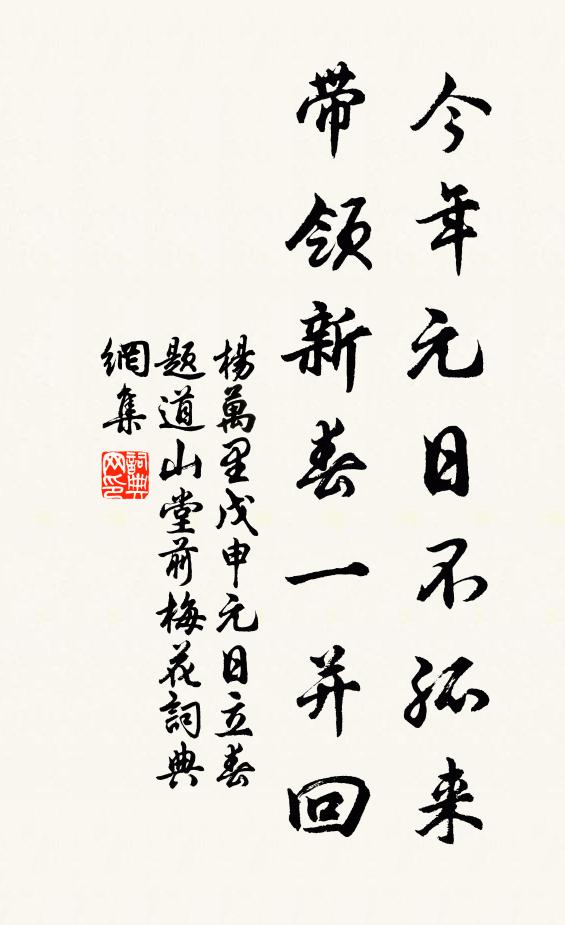 今年元日不孤来
带领新春一并回
楊萬里戊申元日立春
题道山堂前梅花詞典
網集
詞典网印